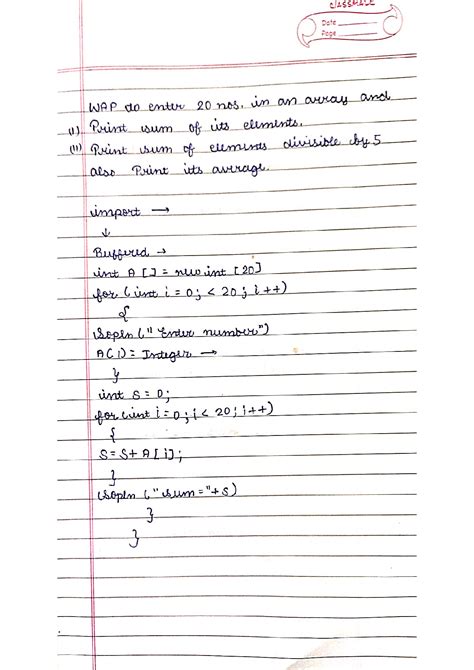 CLASSMATE
Date
Page
WAP to enter 20 nos. in an array and
(I) Print sum of its elements.
(II) Print sum of elements divisible by 5
also Print its average.
import →
↓
Buffered →
int A [] = new int [20]
for (int i = 0; < 20; i++)
{
Sopln (" Enter number")
A(i) = Integer →
}
int S = 0;
for (int i = 0; i < 20; i++)
{
S = S + A [i];
}
Sopln (" sum = "+ S)
}
}